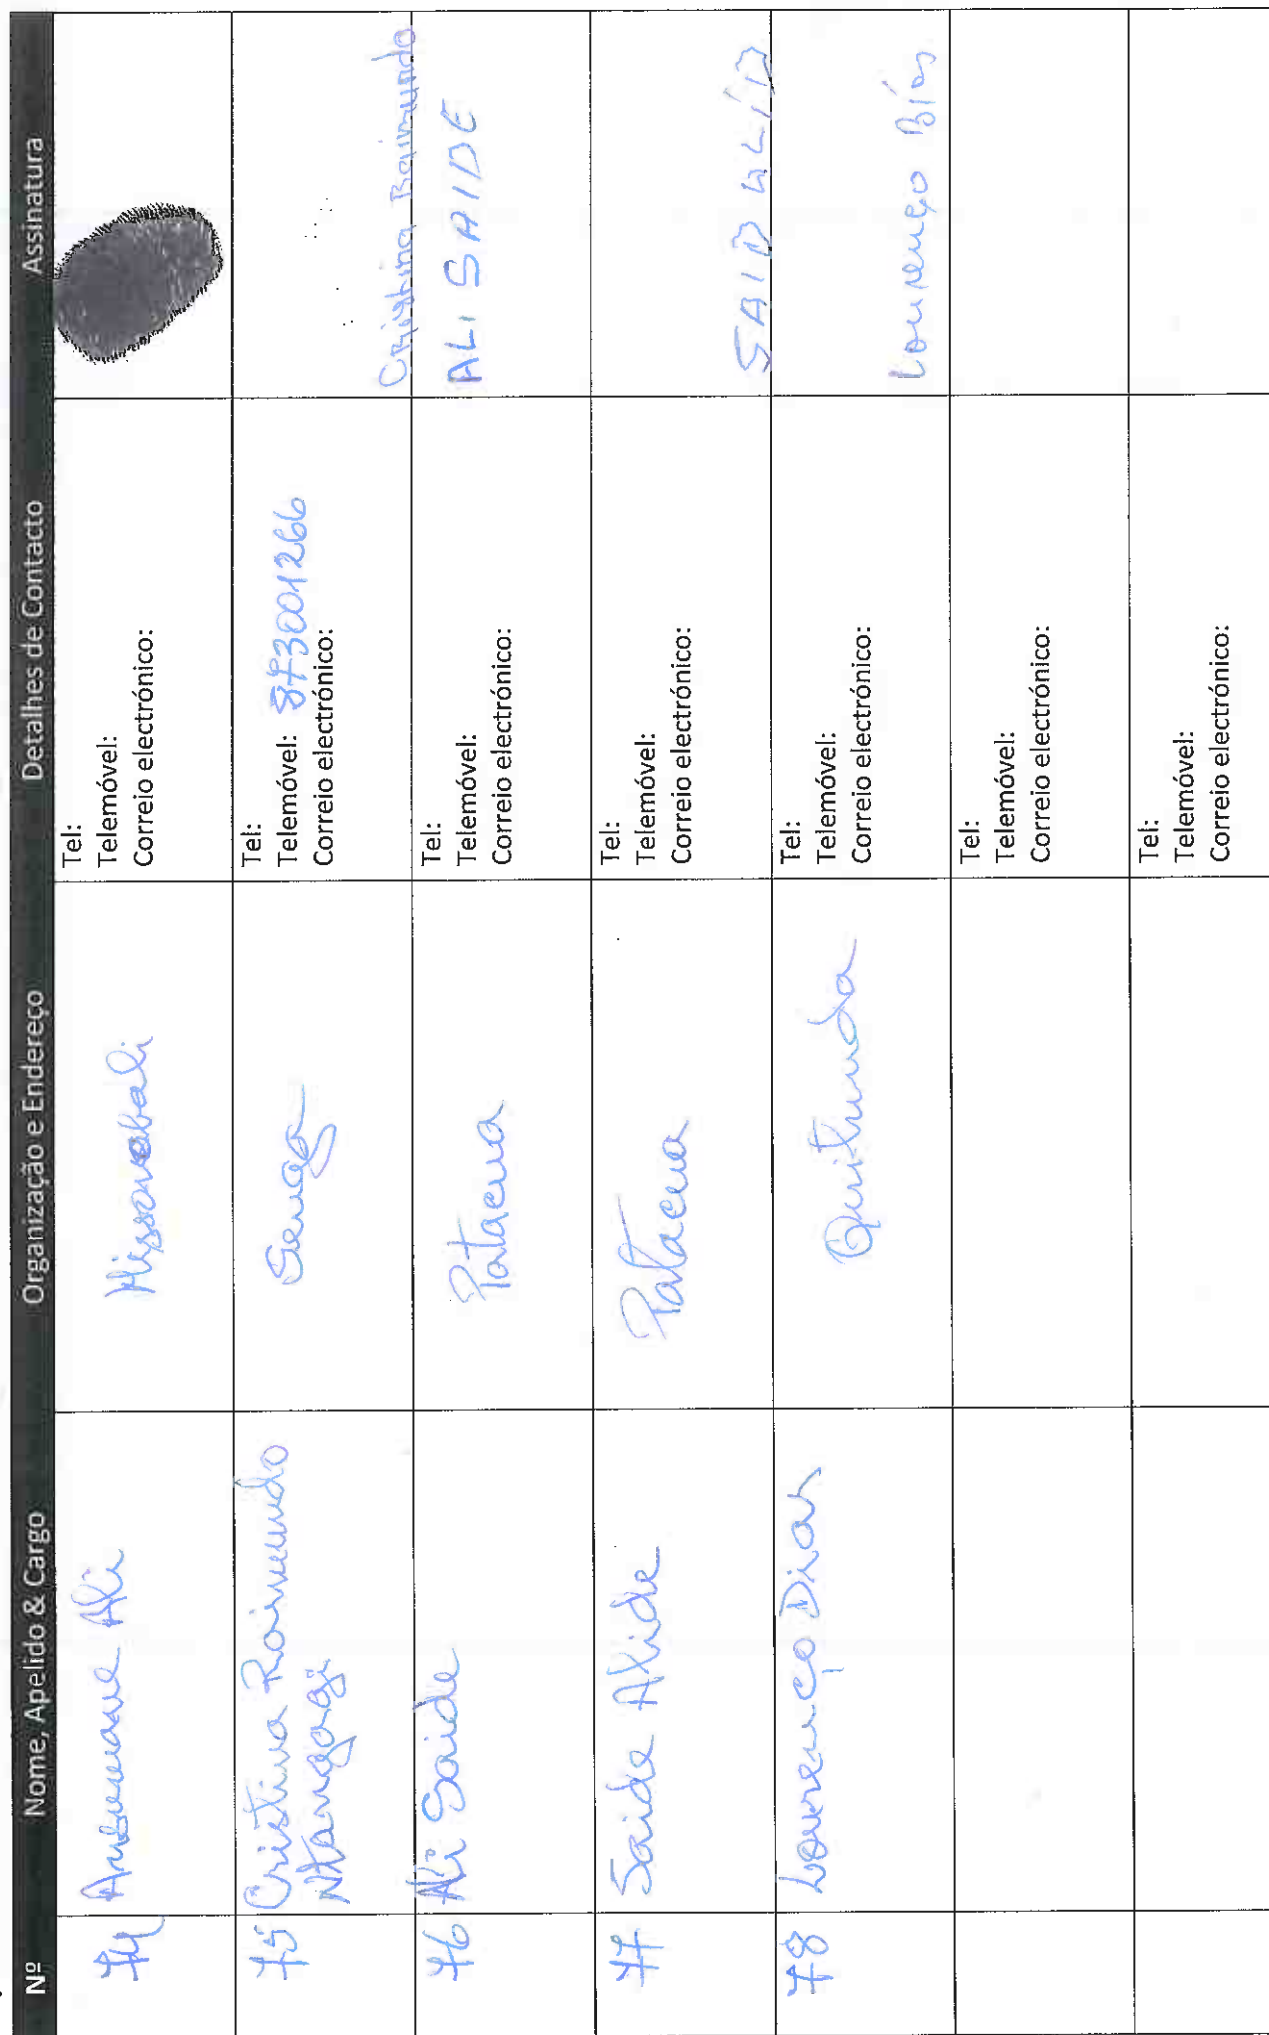 Nº Nome, Apelido & Cargo Organização e Endereço Detalhes de Contacto Assinatura
74 Ali
Tel:
Telemóvel:
Correio electrónico:
75 Cristina Raimundo
Senga
Tel:
Telemóvel: 873001266
Correio electrónico:
Raimundo
76 Ali Saide
Patacua
Tel:
Telemóvel:
Correio electrónico:
ALI SAIDE
77 Saide Alide
Patacua
Tel:
Telemóvel:
Correio electrónico:
78 Lourenço Dias
Quitunda
Tel:
Telemóvel:
Correio electrónico:
Tel:
Telemóvel:
Correio electrónico:
Tel:
Telemóvel:
Correio electrónico: